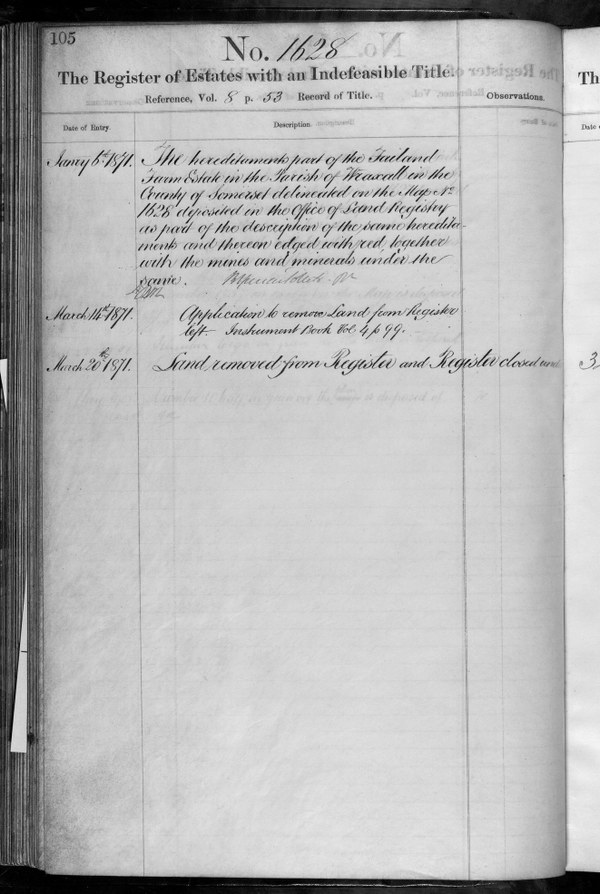 105
No. 1628
The Register of Estates with an Indefeasible Title.
Reference, Vol. 8 p. 53 Record of Title.
Observations.
Date of Entry.
Description.
Jany 6th 1871.
The hereditaments part of the Failand
Farm Estate in the Parish of Wraxall in the
County of Somerset delineated on the Map No
1628 deposited in the Office of Land Registry
as part of the description of the same heredita-
ments and thereon edged with red together
with the mines and minerals under the
same.
March 14th 1871.
Application to remove Land from Register
left. Instrument Book Vol 4 p 99.
March 20th 1871.
Land removed from Register and Register closed
Th
Date
3